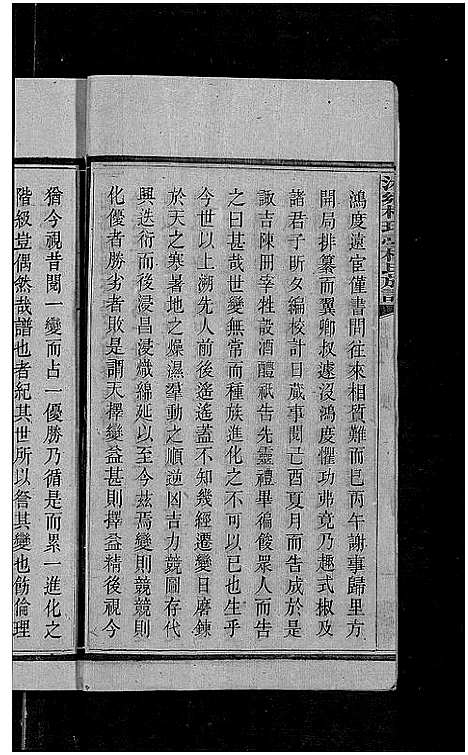 鴻度遠宦僅書問往來相質難而巳丙午謝事歸里方
開局排纂而翼卿叔遽沒鴻度懼功弗竟乃趣式椒及
諸君子昕夕編校計日蕆事閱己酉夏月而告成於是
諏吉陳冊宰牲設酒醴祇告先靈禮畢徧餕眾人而告
之曰甚哉世變無常而種族進化之不可以已也生乎
今世以上溯先人前後遙遙蓋不知幾經遷變日磨鍊
於天之寒暑地之燥濕羣動之順逆凶吉力競圖存代
興迭衍而後浸昌浸熾綿延以至今茲焉變則競競則
化優者勝劣者敗是謂天擇變益甚則擇益精後視今
猶今視昔閱一變而占一優勝乃循是而累一進化之
階級豈偶然哉譜也者紀其世所以咎其變也飭倫理